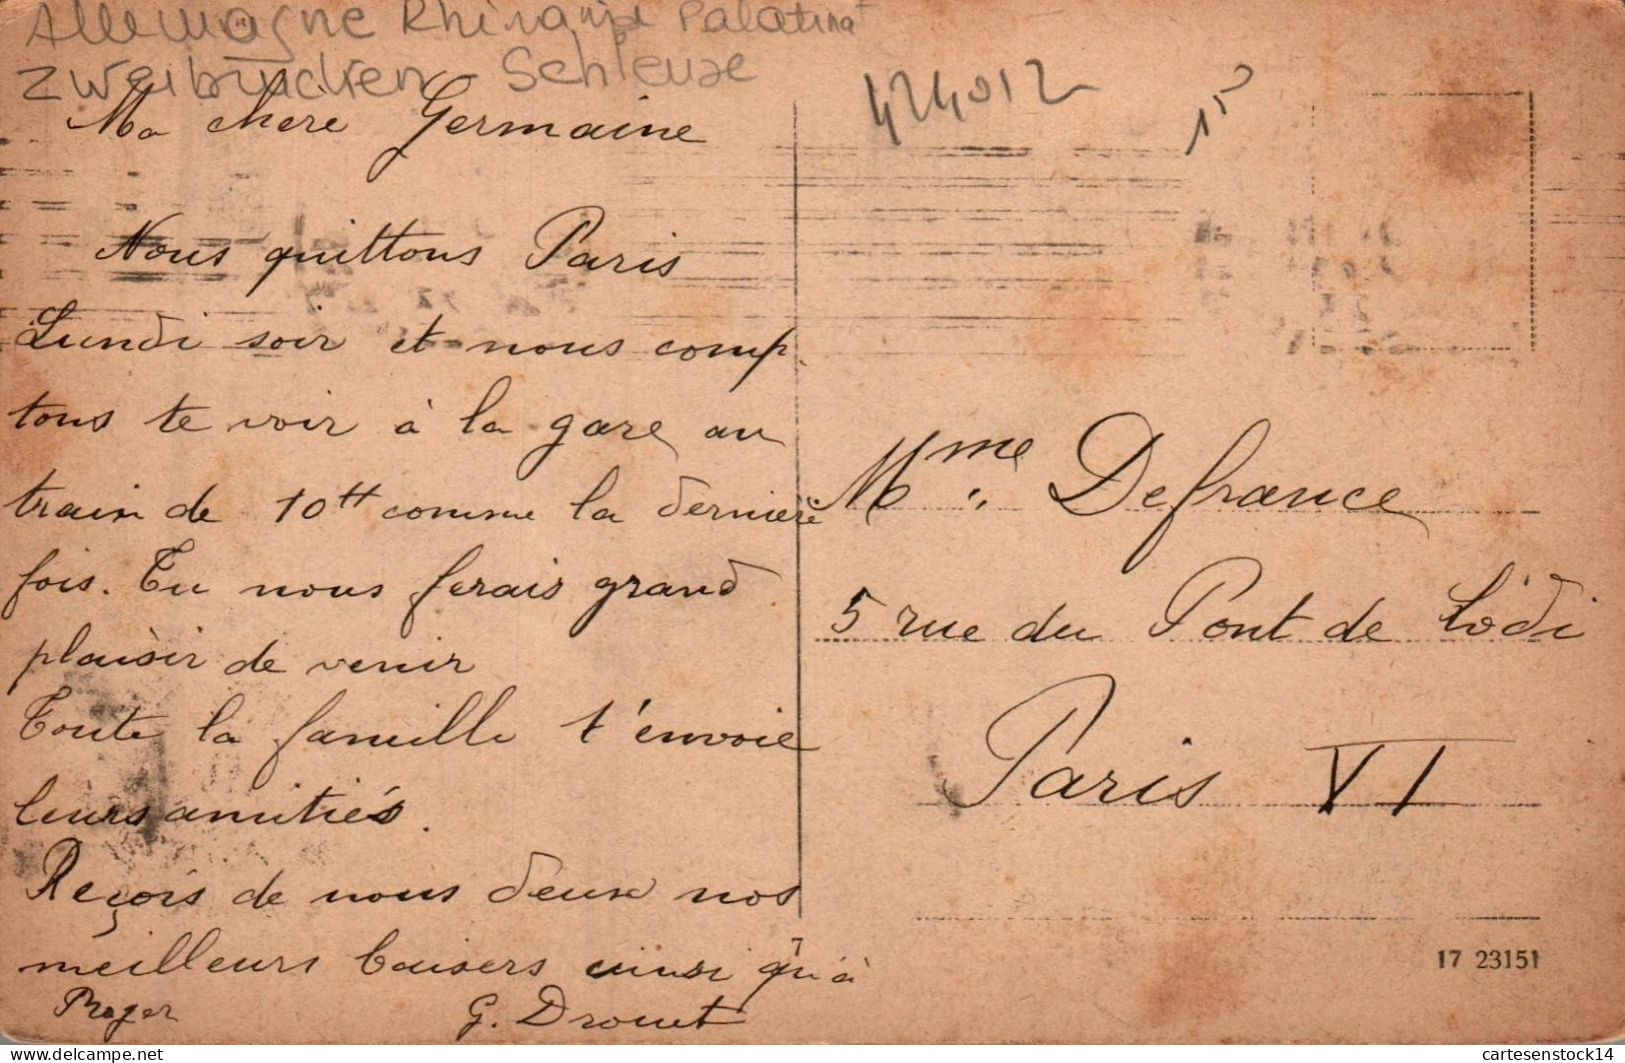 Allemagne Rhénanie Palatinat
Zweibrücken Schleuse
424012
15
Ma chère Germaine
Nous quittons Paris
Lundi soir et nous comp
tons te voir à la gare au
train de 10H comme la dernière
fois. Tu nous ferais grand
plaisir de venir
Toute la famille t'envoie
leurs amitiés.
Reçois de nous deux nos
meilleurs baisers ainsi qu'à
Roger G. Drouet
Mme Defrance
5 rue du Pont de Lodi
Paris VI
7
17 23151
cartesenstock14